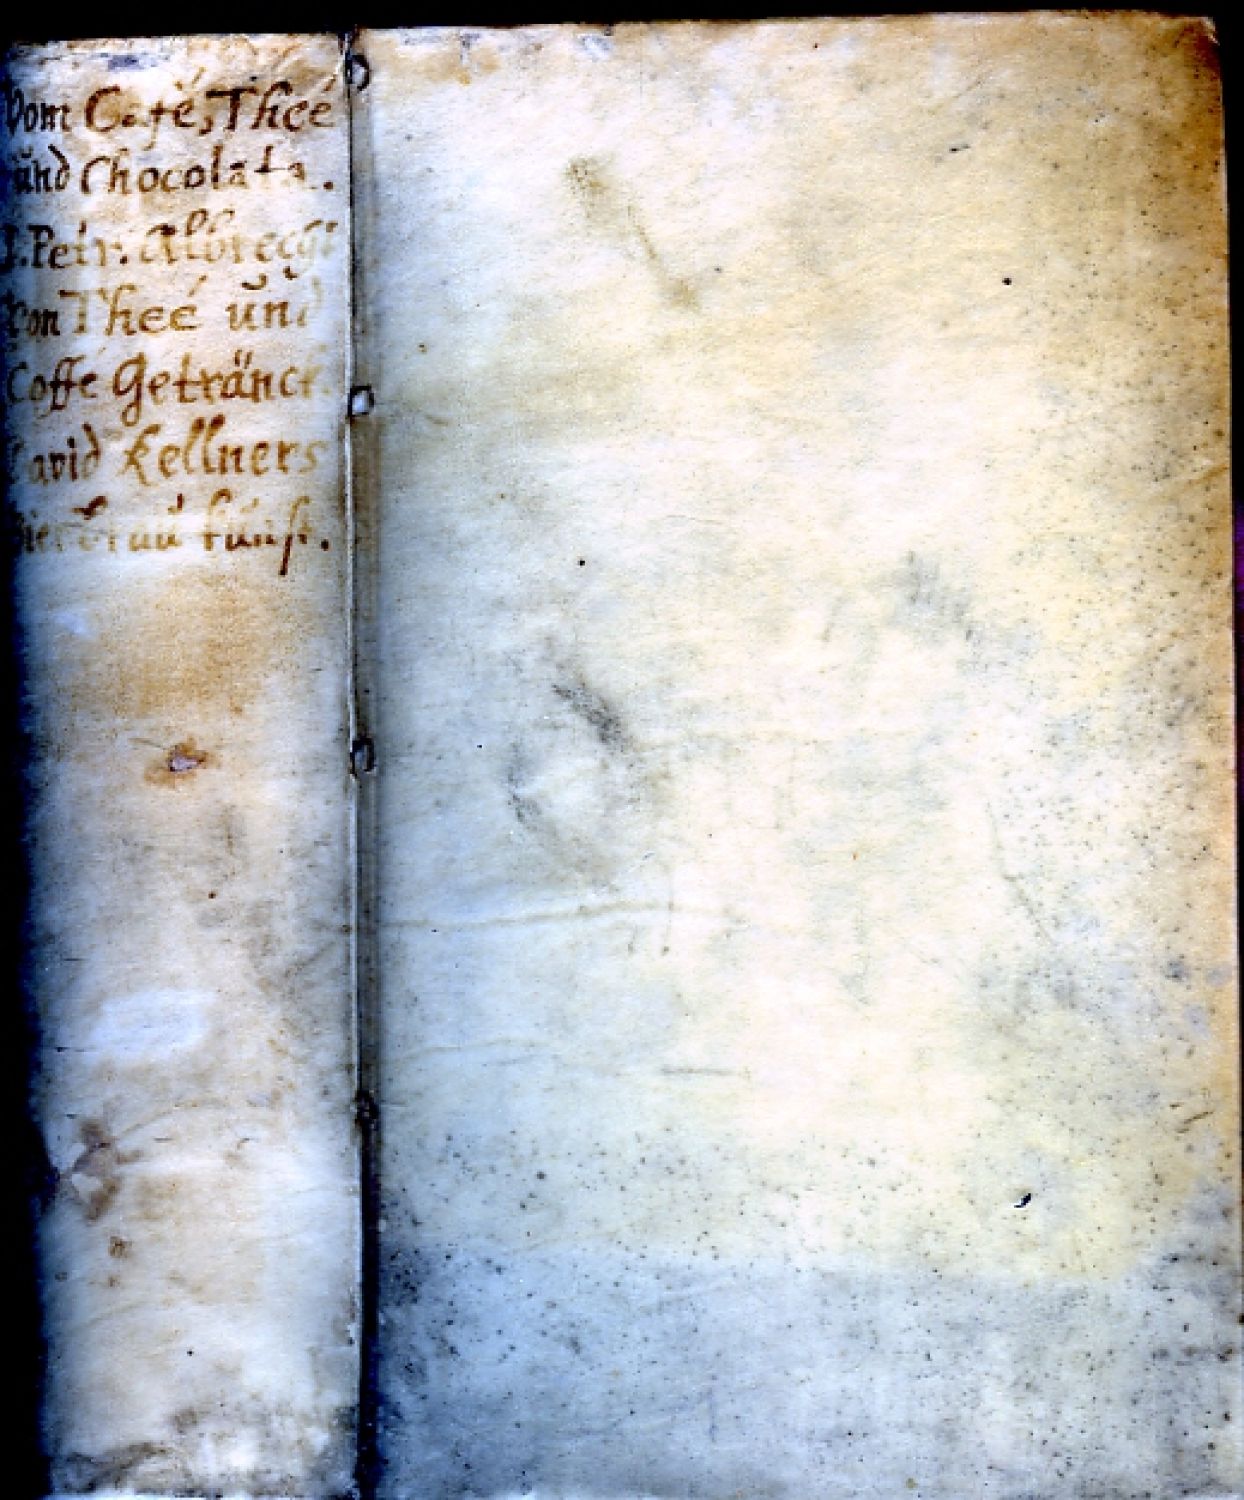 Vom Café, Theé
ünd Chocolata.
J. Petr. Albrecht
von Theé ünd
Coffé Getränck.
David Kellners
bierbraü künst.